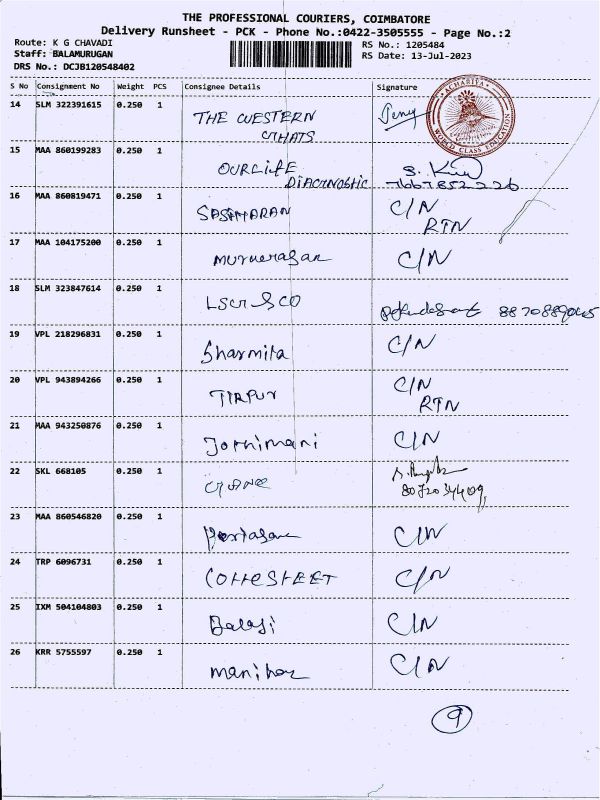 THE PROFESSIONAL COURIERS, COIMBATORE
Delivery Runsheet - PCK - Phone No.:0422-3505555 - Page No.:2
Route: K G CHAVADI
RS No.: 1205484
Staff: BALAMURUGAN
RS Date: 13-Jul-2023
DRS No.: DCJB120548402
S No Consignment No Weight PCS Consignee Details Signature
14 SLM 322391615 0.250 1 THE WESTERN
GHATS
ACHARIYA
WORLD CLASS EDUCATION
15 MAA 860199283 0.250 1 OURLIFE
DIAGNOSTIC
7667852226
16 MAA 860819471 0.250 1 SASIHARAN C/N
RTN
17 MAA 104175200 0.250 1 C/N
18 SLM 323847614 0.250 1
19 VPL 218296831 0.250 1 Sharmita C/N
20 VPL 943894266 0.250 1 TIRPUR C/N
RTN
21 MAA 943250876 0.250 1 Jothimani C/N
22 SKL 668105 0.250 1
23 MAA 860546820 0.250 1 C/N
24 TRP 6096731 0.250 1 C/N
25 IXM 504104803 0.250 1 Balaji C/N
26 KRR 5755597 0.250 1 C/N
9